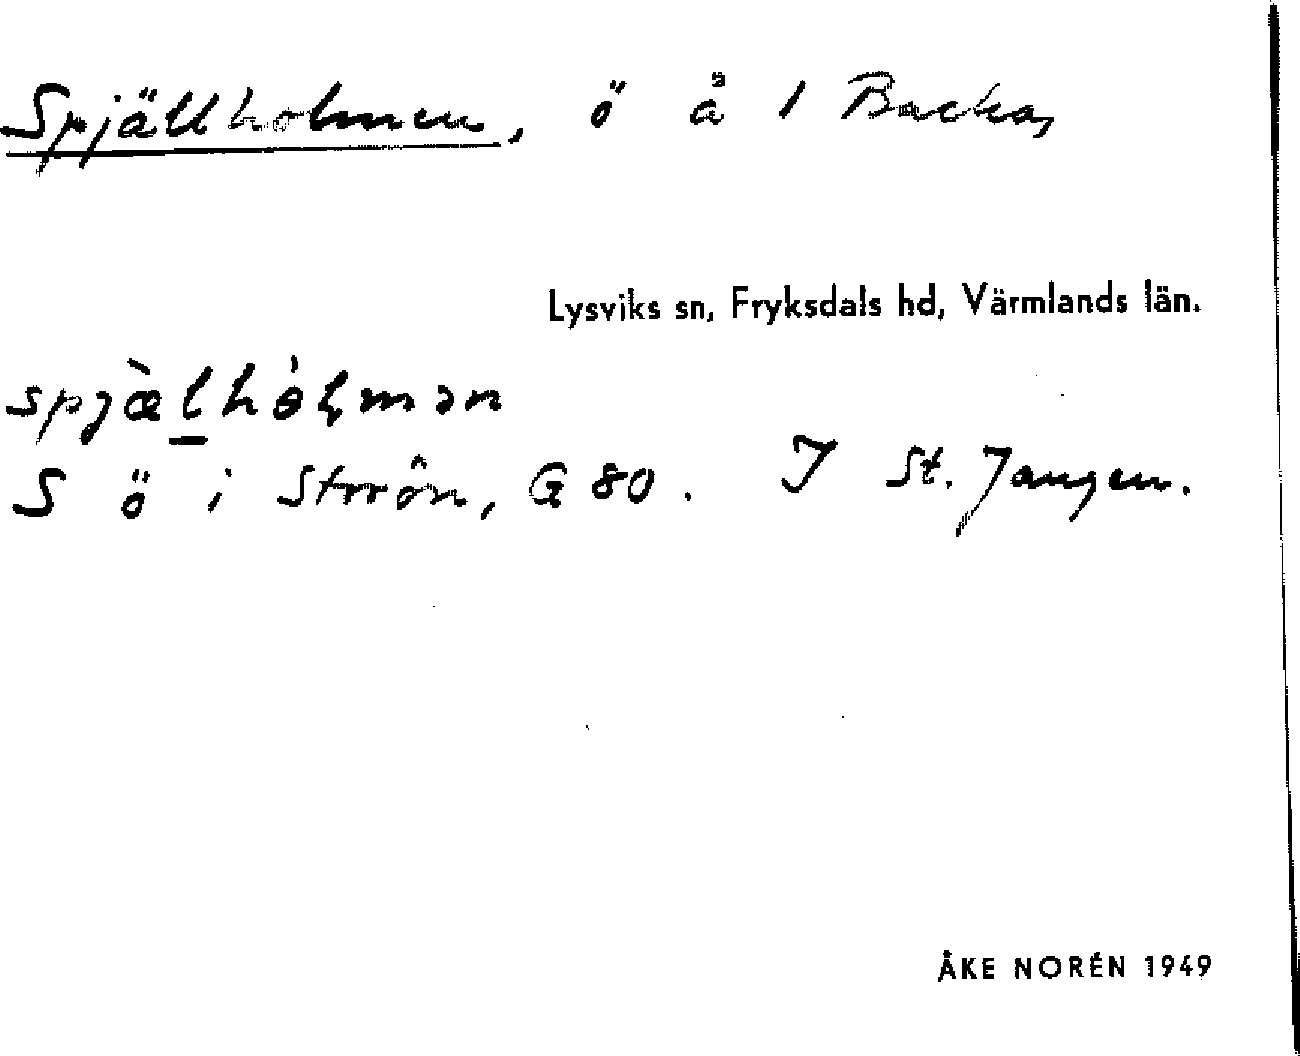 Spjällholmen, ö å 1 Backa,
Lysviks sn, Fryksdals hd, Värmlands län.
spjæ̀lhólmən
S ö i Strrön, G 80. I St. Jangen.
ÅKE NORÉN 1949